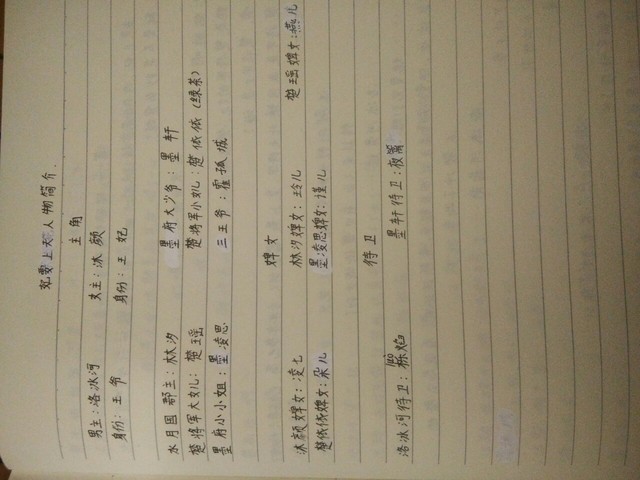 妃要上天人物简介.
主角
男主:洛冰河 女主:沐颜
身份:王爷 身份:王妃
水月国郡主:林汐 墨府大少爷:墨轩
楚将军大女儿:楚瑶 楚将军小女儿:楚依依(绿茶)
墨府小小姐:墨凌思 三王爷:霍孤城
婢女
沐颜婢女:凌七 林汐婢女:玲儿 楚瑶婢女:燕儿
楚依依婢女:朵儿 墨凌思婢女:瑾儿
侍卫
洛冰河侍卫:焰 墨轩侍卫:夜